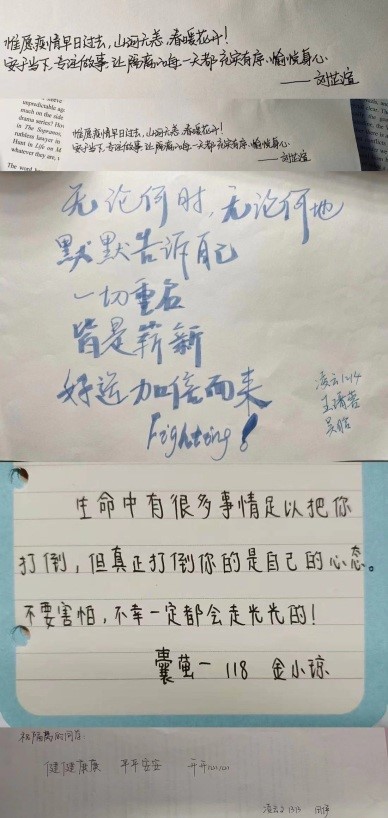 惟愿疫情早日过去，山河无恙，春暖花开！
安于当下，专注做事，让隔离的每一天都充实有序、愉悦身心
unpredictable
much on the side
drama series? Ho
in The Sopranos,
ruthless lawyer in
Hunt in Life on M
whatever they are,
The word
惟愿疫情早日过去，山河无恙，春暖花开！
安于当下，专注做事，让隔离的每一天都充实有序、愉悦身心
无论何时，无论何地
默默告诉自己
一切重启
皆是薪新
好运加倍而来
Fighting！
凌云1214
生命中有很多事情足以把你
打倒，但真正打倒你的是自己的心态。
不要害怕，不幸一定都会走光光的！
囊萤一 118 金小琼
祝隔离的同学
健健康康 平平安安 开开心心
凌云2 1313